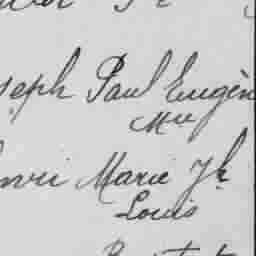 seph Paul Eugèn
Mie
nri Marie Jh
Louis